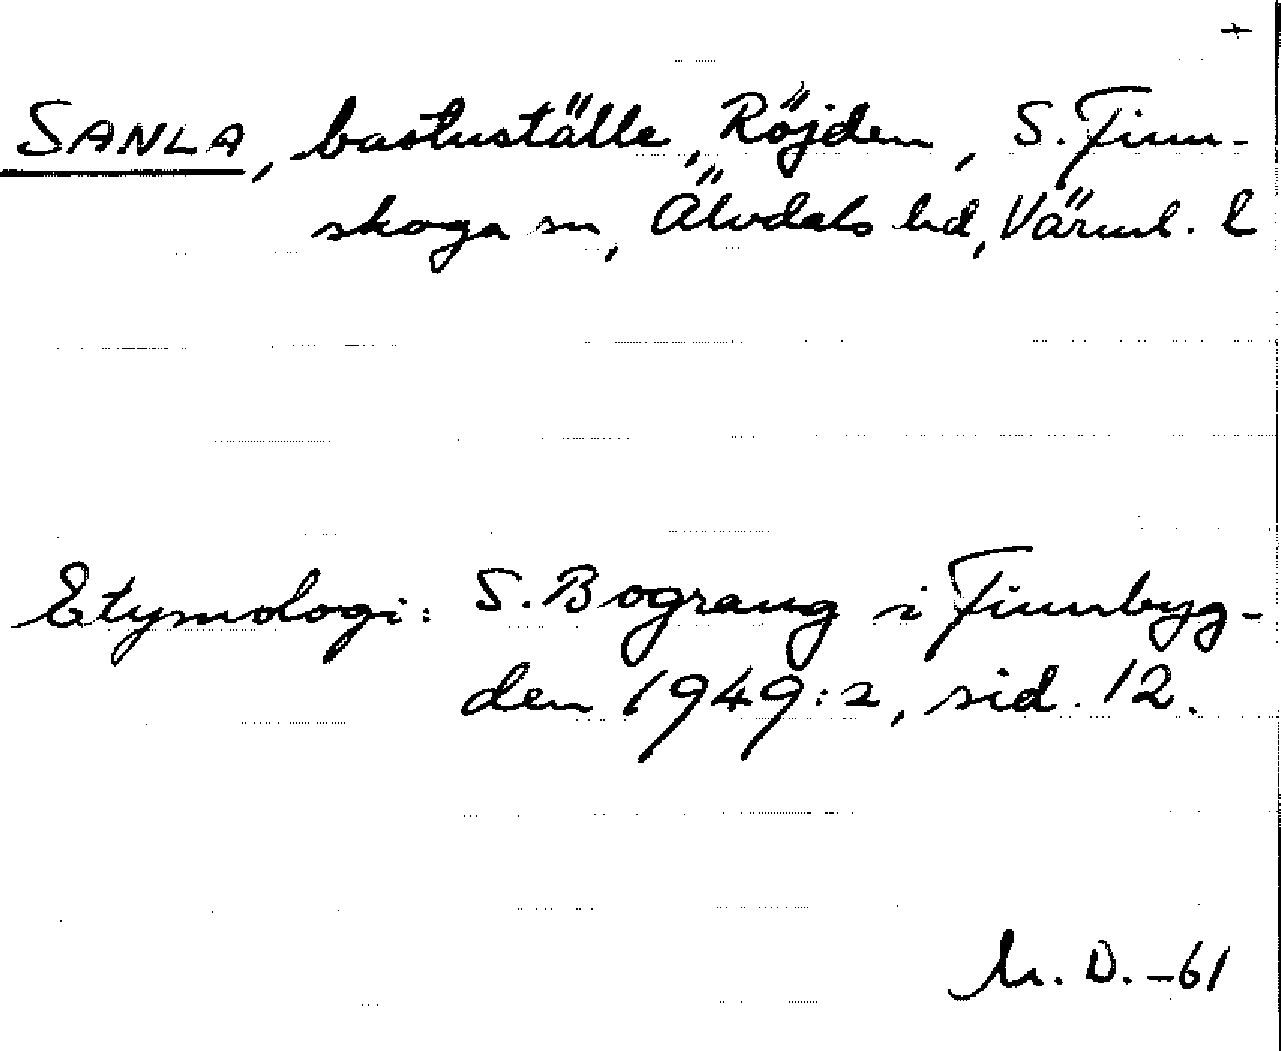 +
SANLA, bastuställe, Röjden, S. Finn-
skoga sn, Älvdals hd, Värml. l
Etymologi: S. Bograng i Finnbyg-
den 1949:2, sid. 12.
D. -61